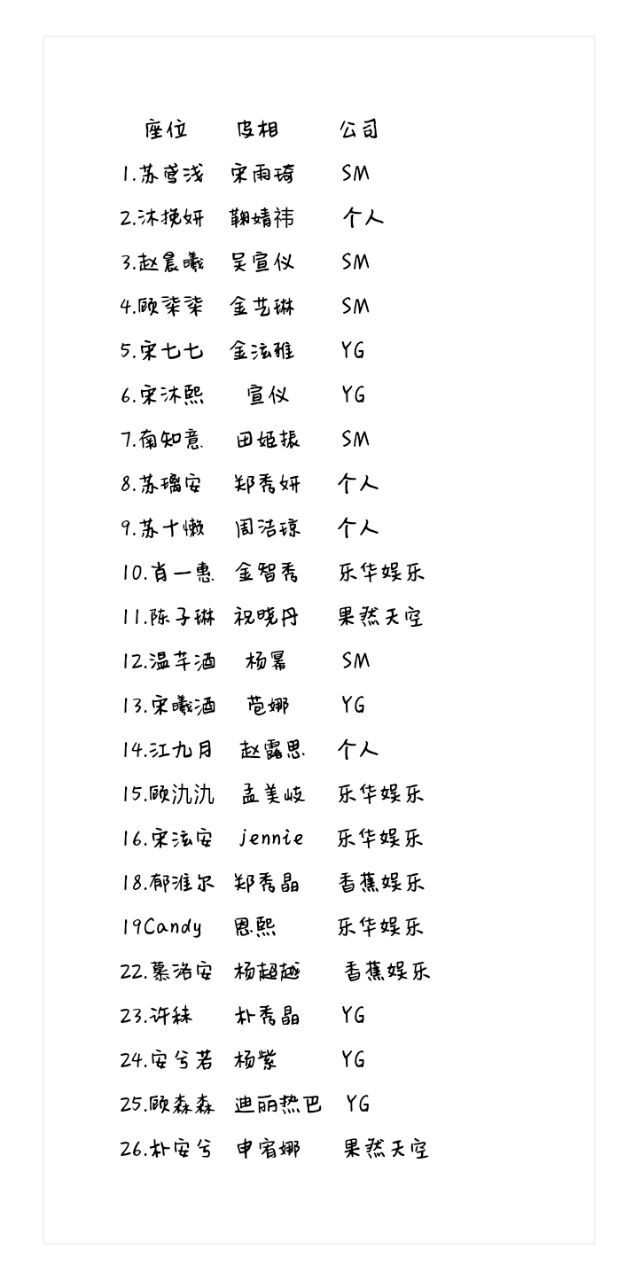 座位 皮相 公司
1.苏莺浅 宋雨琦 SM
2.沐挽妍 鞠婧祎 个人
3.赵晨曦 吴宣仪 SM
4.顾柒柒 金艺琳 SM
5.宋七七 金泫雅 YG
6.宋沐熙 宣仪 YG
7.南知意 田姬振 SM
8.苏璃安 郑秀妍 个人
9.苏十懒 周洁琼 个人
10.肖一惠 金智秀 乐华娱乐
11.陈子琳 祝晓丹 果然天空
12.温芊酒 杨幂 SM
13.宋曦酒 苞娜 YG
14.江九月 赵露思 个人
15.顾氿氿 孟美岐 乐华娱乐
16.宋泫安 jennie 乐华娱乐
18.郁淮尔 郑秀晶 香蕉娱乐
19Candy 恩熙 乐华娱乐
22.慕洛安 杨超越 香蕉娱乐
23.许秣 朴秀晶 YG
24.安兮若 杨紫 YG
25.顾森森 迪丽热巴 YG
26.朴安兮 申宥娜 果然天空